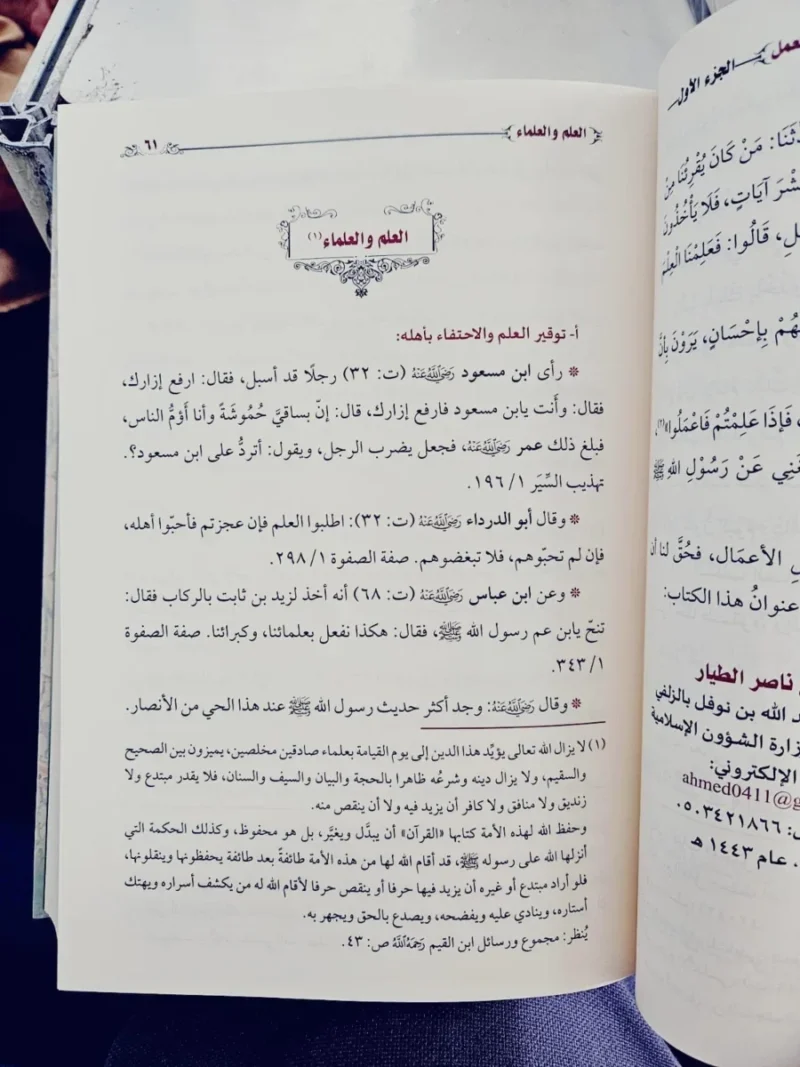 العلم والعلماء
٦١
العلم والعلماء(١)
أ- توقير العلم والاحتفاء بأهله:
* رأى ابن مسعود رَضِيَاللَّهُعَنْهُ (ت: ٣٢) رجلًا قد أسبل، فقال: ارفع إزارك،
فقال: وأَنت يابن مسعود فارفع إزارك، قال: إنّ بساقيَّ حُمُوشَةً وأنا أَؤمُّ الناس،
فبلغ ذلك عمر رَضِيَاللَّهُعَنْهُ، فجعل يضرب الرجل، ويقول: أتردُّ على ابن مسعود؟.
تهذيب السِّيَر ١/ ١٩٦.
* وقال أبو الدرداء رَضِيَاللَّهُعَنْهُ (ت: ٣٢): اطلبوا العلم فإن عجزتم فأحبّوا أهله،
فإن لم تحبّوهم، فلا تبغضوهم. صفة الصفوة ١/ ٢٩٨.
* وعن ابن عباس رَضِيَاللَّهُعَنْهُ (ت: ٦٨) أنه أخذ لزيد بن ثابت بالركاب فقال:
تنحّ يابن عم رسول الله ﷺ، فقال: هكذا نفعل بعلمائنا، وكبرائنا. صفة الصفوة
١/ ٣٤٣.
* وقال رَضِيَاللَّهُعَنْهُ: وجد أكثر حديث رسول الله ﷺ عند هذا الحي من الأنصار.
(١) لا يزال الله تعالى يؤيِّد هذا الدين إلى يوم القيامة بعلماء صادقين مخلصين، يميزون بين الصحيح
والسقيم، ولا يزال دينه وشرعُه ظاهرا بالحجة والبيان والسيف والسنان، فلا يقدر مبتدع ولا
زنديق ولا منافق ولا كافر أن يزيد فيه ولا أن ينقص منه.
وحفظ الله لهذه الأمة كتابها «القرآن» أن يبدَّل ويغيَّر، بل هو محفوظ، وكذلك الحكمة التي
أنزلها الله على رسوله ﷺ، قد أقام الله لها من هذه الأمة طائفةً بعد طائفة يحفظونها وينقلونها،
فلو أراد مبتدع أو غيره أن يزيد فيها حرفا أو ينقص حرفا لأقام الله له من يكشف أسراره ويهتك
أستاره، وينادي عليه ويفضحه، ويصدع بالحق ويجهر به.
يُنظر: مجموع ورسائل ابن القيم رَحِمَهُاللَّهُ ص: ٤٣.
الجزء الأول
مَنْ كَانَ يُقْرِئُنَا مِنْ
آيَاتٍ، فَلَا يَأْخُذُونَ
قَالُوا: فَعَلِمْنَا الْعِلْمَ
بِإِحْسَانٍ، يَرَوْنَ بِأَنَّ
فَإِذَا عَلِمْتُمْ فَاعْمَلُوا»(٢)،
عَنْ رَسُوْلِ اللهِ ﷺ
الأعمَال، فحُقَّ لنا أن
عنوانُ هذا الكتاب:
ناصر الطيار
الله بن نوفل بالزلفي
الشؤون الإسلامية
الإلكتروني:
ahmed0411@g
٠٥٠٣٤٢١٨٦٦
عام ١٤٤٣ هـ